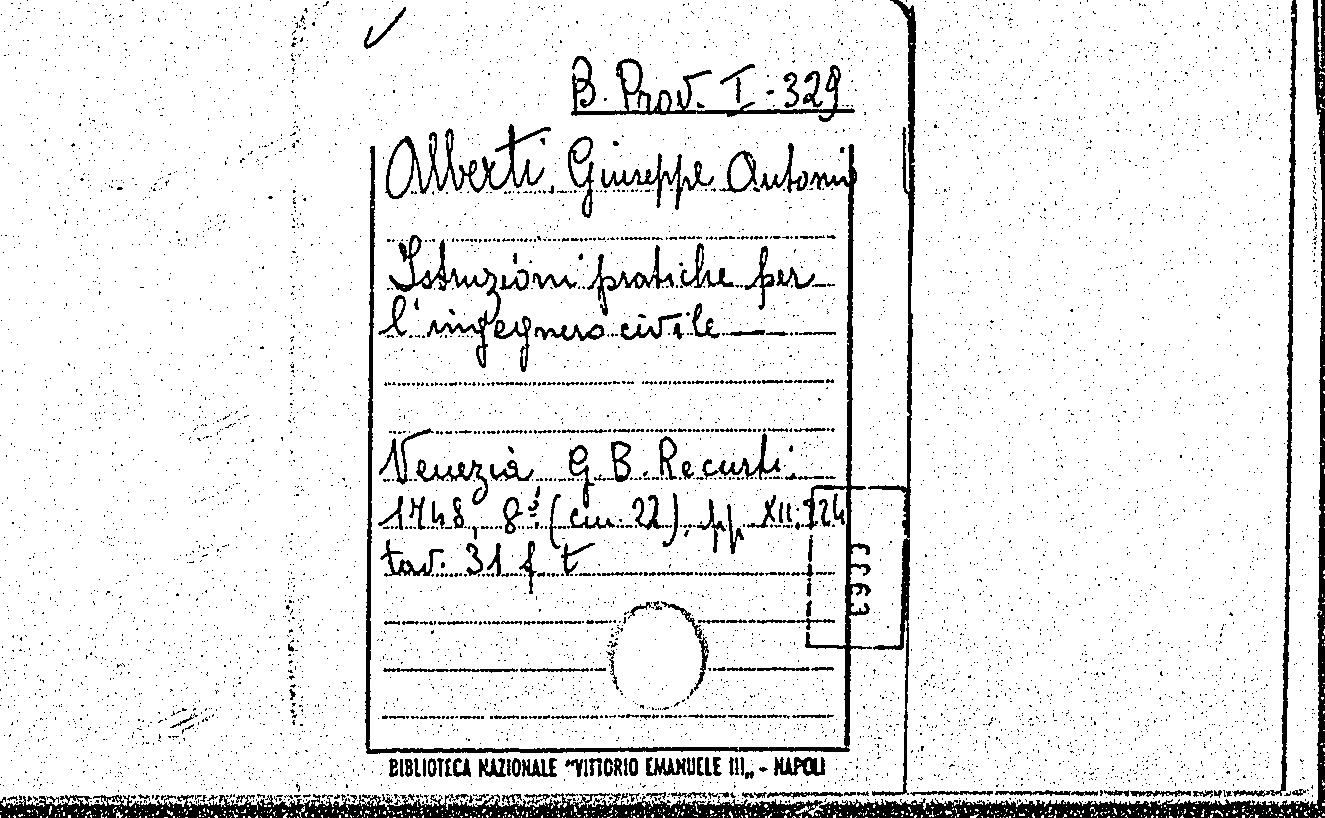 B. Prov. I - 329
Alberti, Giuseppe Antonio
Istruzioni pratiche per
l'ingegnero civile
Venezia G. B. Recurti.
1748, 8º (cm 22), pp XII, 324
tav. 31 f t
BIBLIOTECA NAZIONALE "VITTORIO EMANUELE III„ - NAPOLI